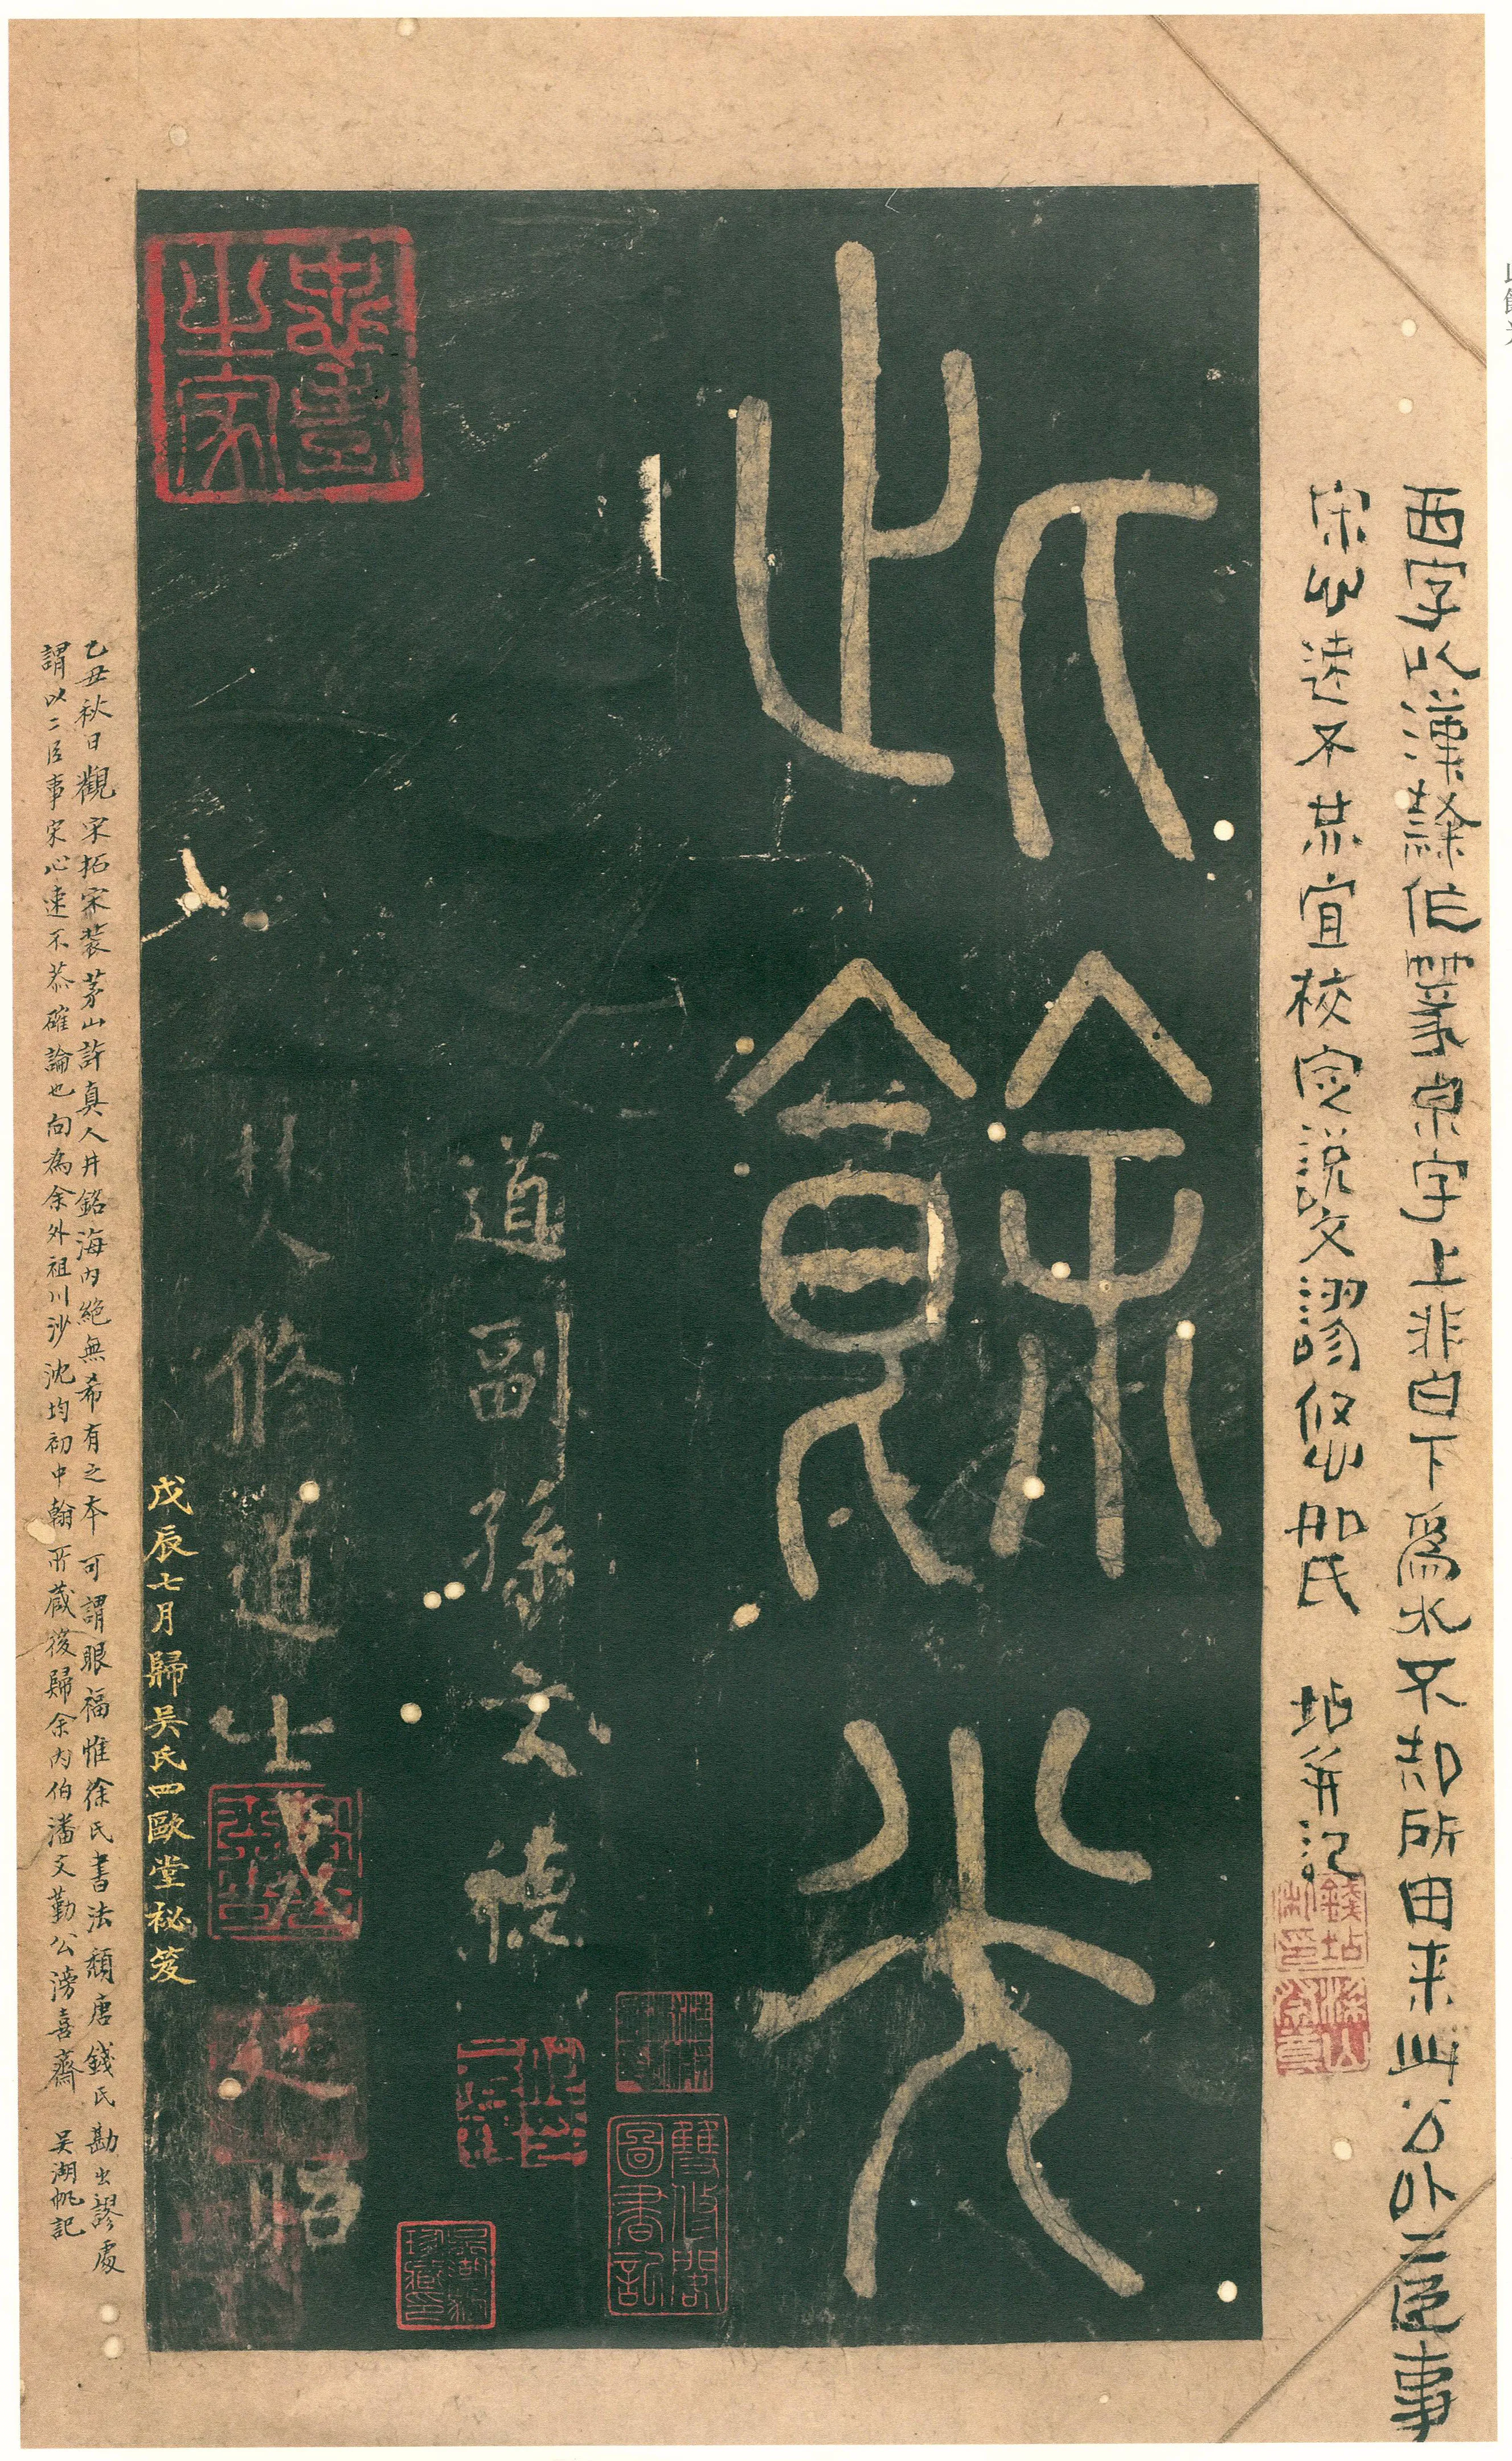 西字以漢隸作篆泉字上非白下為水不知所由來此公以二臣事
宋心迹不恭宜校定說文謬悠如氏 坫并記
此餘光
道副孫文德
焚修道士
延昭
戊辰七月歸吳氏四歐堂祕笈
乙丑秋日觀宋拓宋裝茅山許真人井銘海內絕無希有之本可謂眼福惟徐氏書法頹唐錢氏勘出謬處
謂以二臣事宋心迹不恭確論也向為余外祖川沙沈均初中翰所藏後歸余內伯潘文勤公滂喜齋 吳湖帆記
雙修閣圖書記